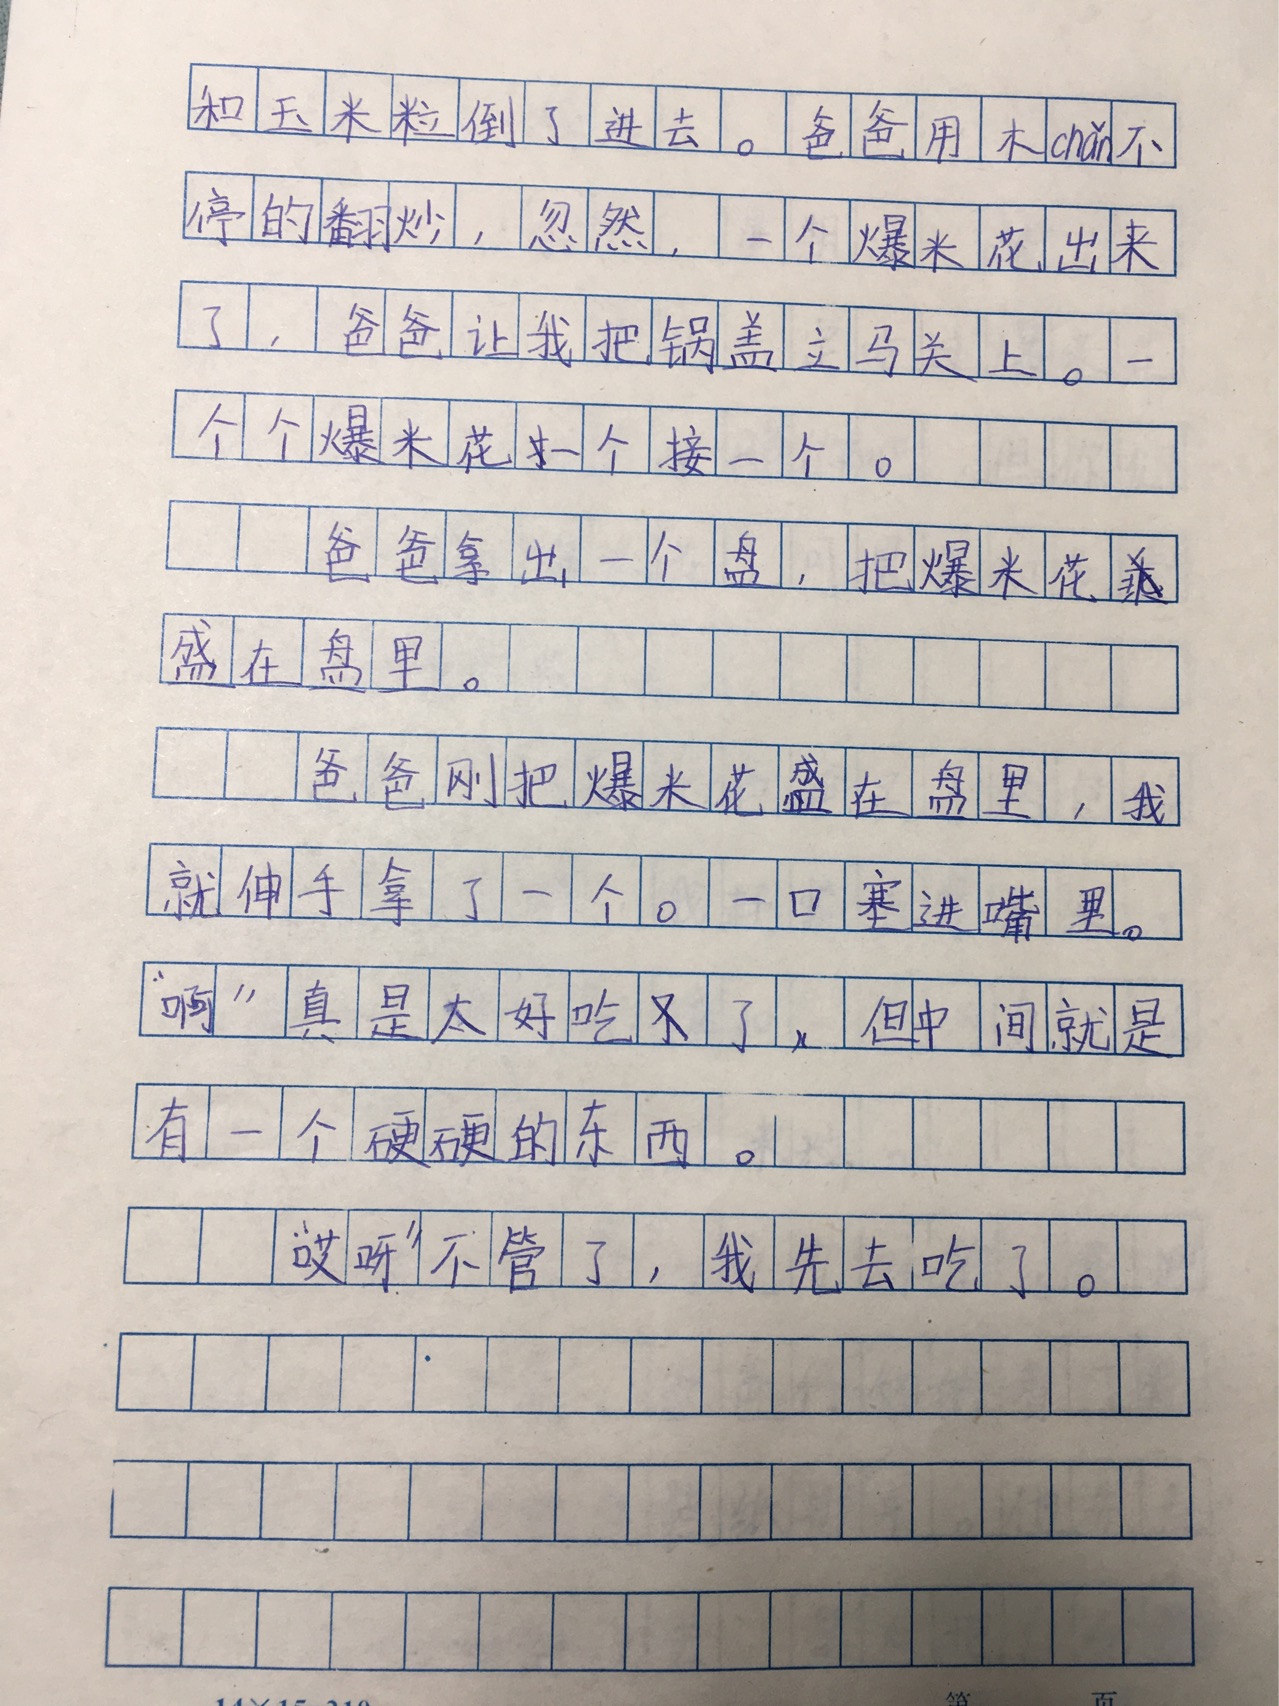 和玉米粒倒了进去。爸爸用木chǎn不
停的翻炒，忽然，一个爆米花出来
了，爸爸让我把锅盖立马关上。一
个个爆米花一个接一个。
爸爸拿出一个盘，把爆米花
盛在盘里。
爸爸刚把爆米花盛在盘里，我
就伸手拿了一个。一口塞进嘴里。
“啊”真是太好吃不了，但中间就是
有一个硬硬的东西。
“哎呀”不管了，我先去吃了。
14×15=210 第 页